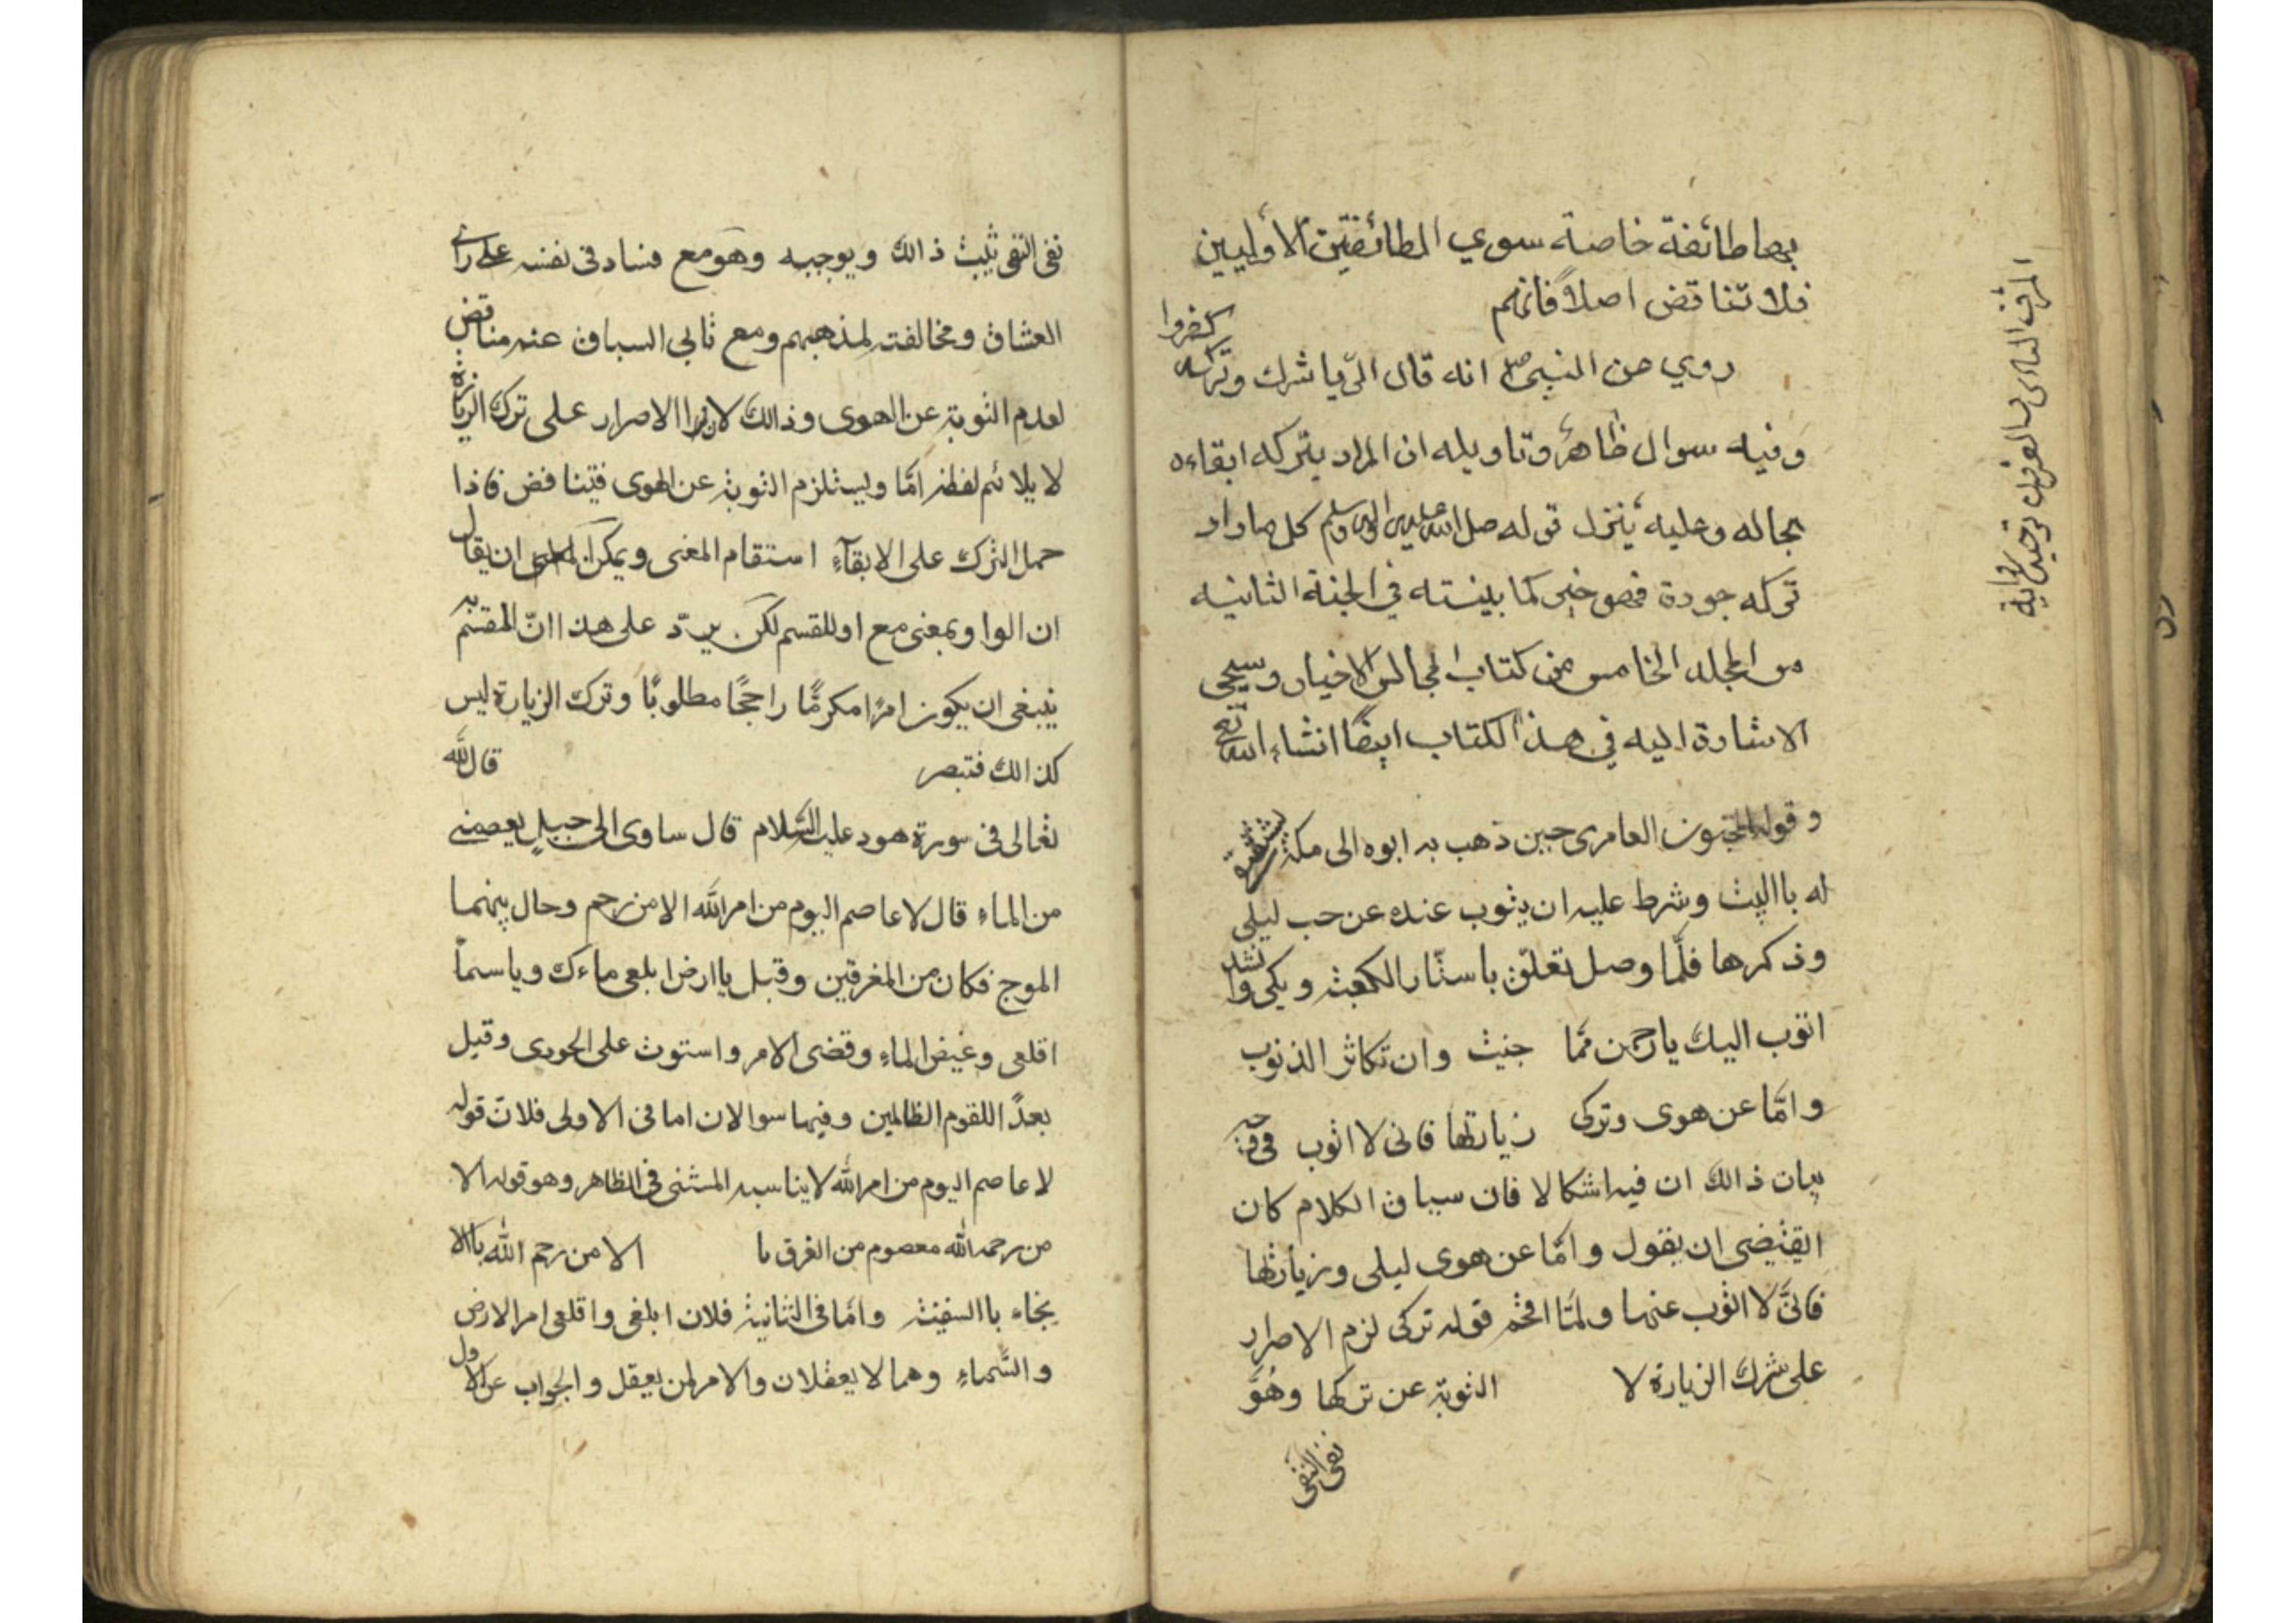 بها طائفة خاصة سوي الطائفتين الأوليين
فلا تناقض اصلاً فانهم
كفروا
روي عن النبي ص انه قال الي يا شرك وتركه
وفيه سوال ظاهر وتاويله ان المراد بتركه ابقاءه
بحاله وعليه ينزل قوله صلى الله عليه واله وسلم كل ما واد
تركه جودة فهو خير كما بينته في الجنة الثانيه
من المجلد الخامس من كتاب مجالس الاخيار وسيجي
الاشارة اليه في هذا الكتاب ايضًا انشاء الله تع
وقول المجنون العامرى حين ذهب به ابوه الى مكة
له باالبيت وشرط عليه ان يتوب عنده عن حب ليلى
وذكرها فلمّا وصل تعلّق باستار الكعبة وبكى وانشد
اتوب اليك يا رحمن ممّا جنيت وان تكاثر الذنوب
وامّا عن هوى وتركى زيارتها فانى لا اتوب
بيان ذالك ان فيه اشكالا فان سياق الكلام كان
ايقتضى ان يقول وامّا عن هوى ليلى وزيارتها
فانىّ لا اتوب عنها ولمّا اقحم قوله تركى لزم الاصرار
على ترك الزيارة لا التوبة عن تركها وهُوَ
نفى النفى
نفى النفى يثبت ذالك ويوجبه وهو مع فساد فى نفسه على راى
العشاق ومخالفته لمذهبهم ومع تابي السياق عنه مناقض
لعدم التوبة عن الهوى وذالك لان الاصرار على ترك الزيارة
لا يلائم لفظه امّا ويستلزم التوبة عن الهوى فيتناقض فاذا
حمل الترك على الابقآء استقام المعنى ويمكن ان يقال
ان الواو بمعنى مع او للقسم لكن يردّ على هذا انّ المقسم به
ينبغى ان يكون امرًا مكرمًّا راجحًا مطلوبًا وترك الزيارة ليس
كذالك فتبصر قال الله
تعالى فى سورة هود عليه السّلام قال ساوى الى جبلٍ يعصمنى
من الماءِ قال لا عاصم اليوم من امر الله الا من رحم وحال بينهما
الموج فكان من المغرقين وقيل يا ارض ابلعى ماءك ويا سماً
اقلعى وغيض الماءِ وقضى الامر واستوت على الجودى وقيل
بعدًا للقوم الظالمين وفيها سوالان اما فى الاولى فلانّ قوله
لا عاصم اليوم من امر الله لا يناسبه المستثنى فى الظاهر وهو قوله الا
من رحمه الله معصوم من الغرق ما الا من رحم الله باالا
بخاء باالسفينة وامّا فى الثانية فلان ابلعى واقلعى امر الارض
والسّماءِ وهما لا يعقلان والامر لمن يعقل والجواب عن الاول